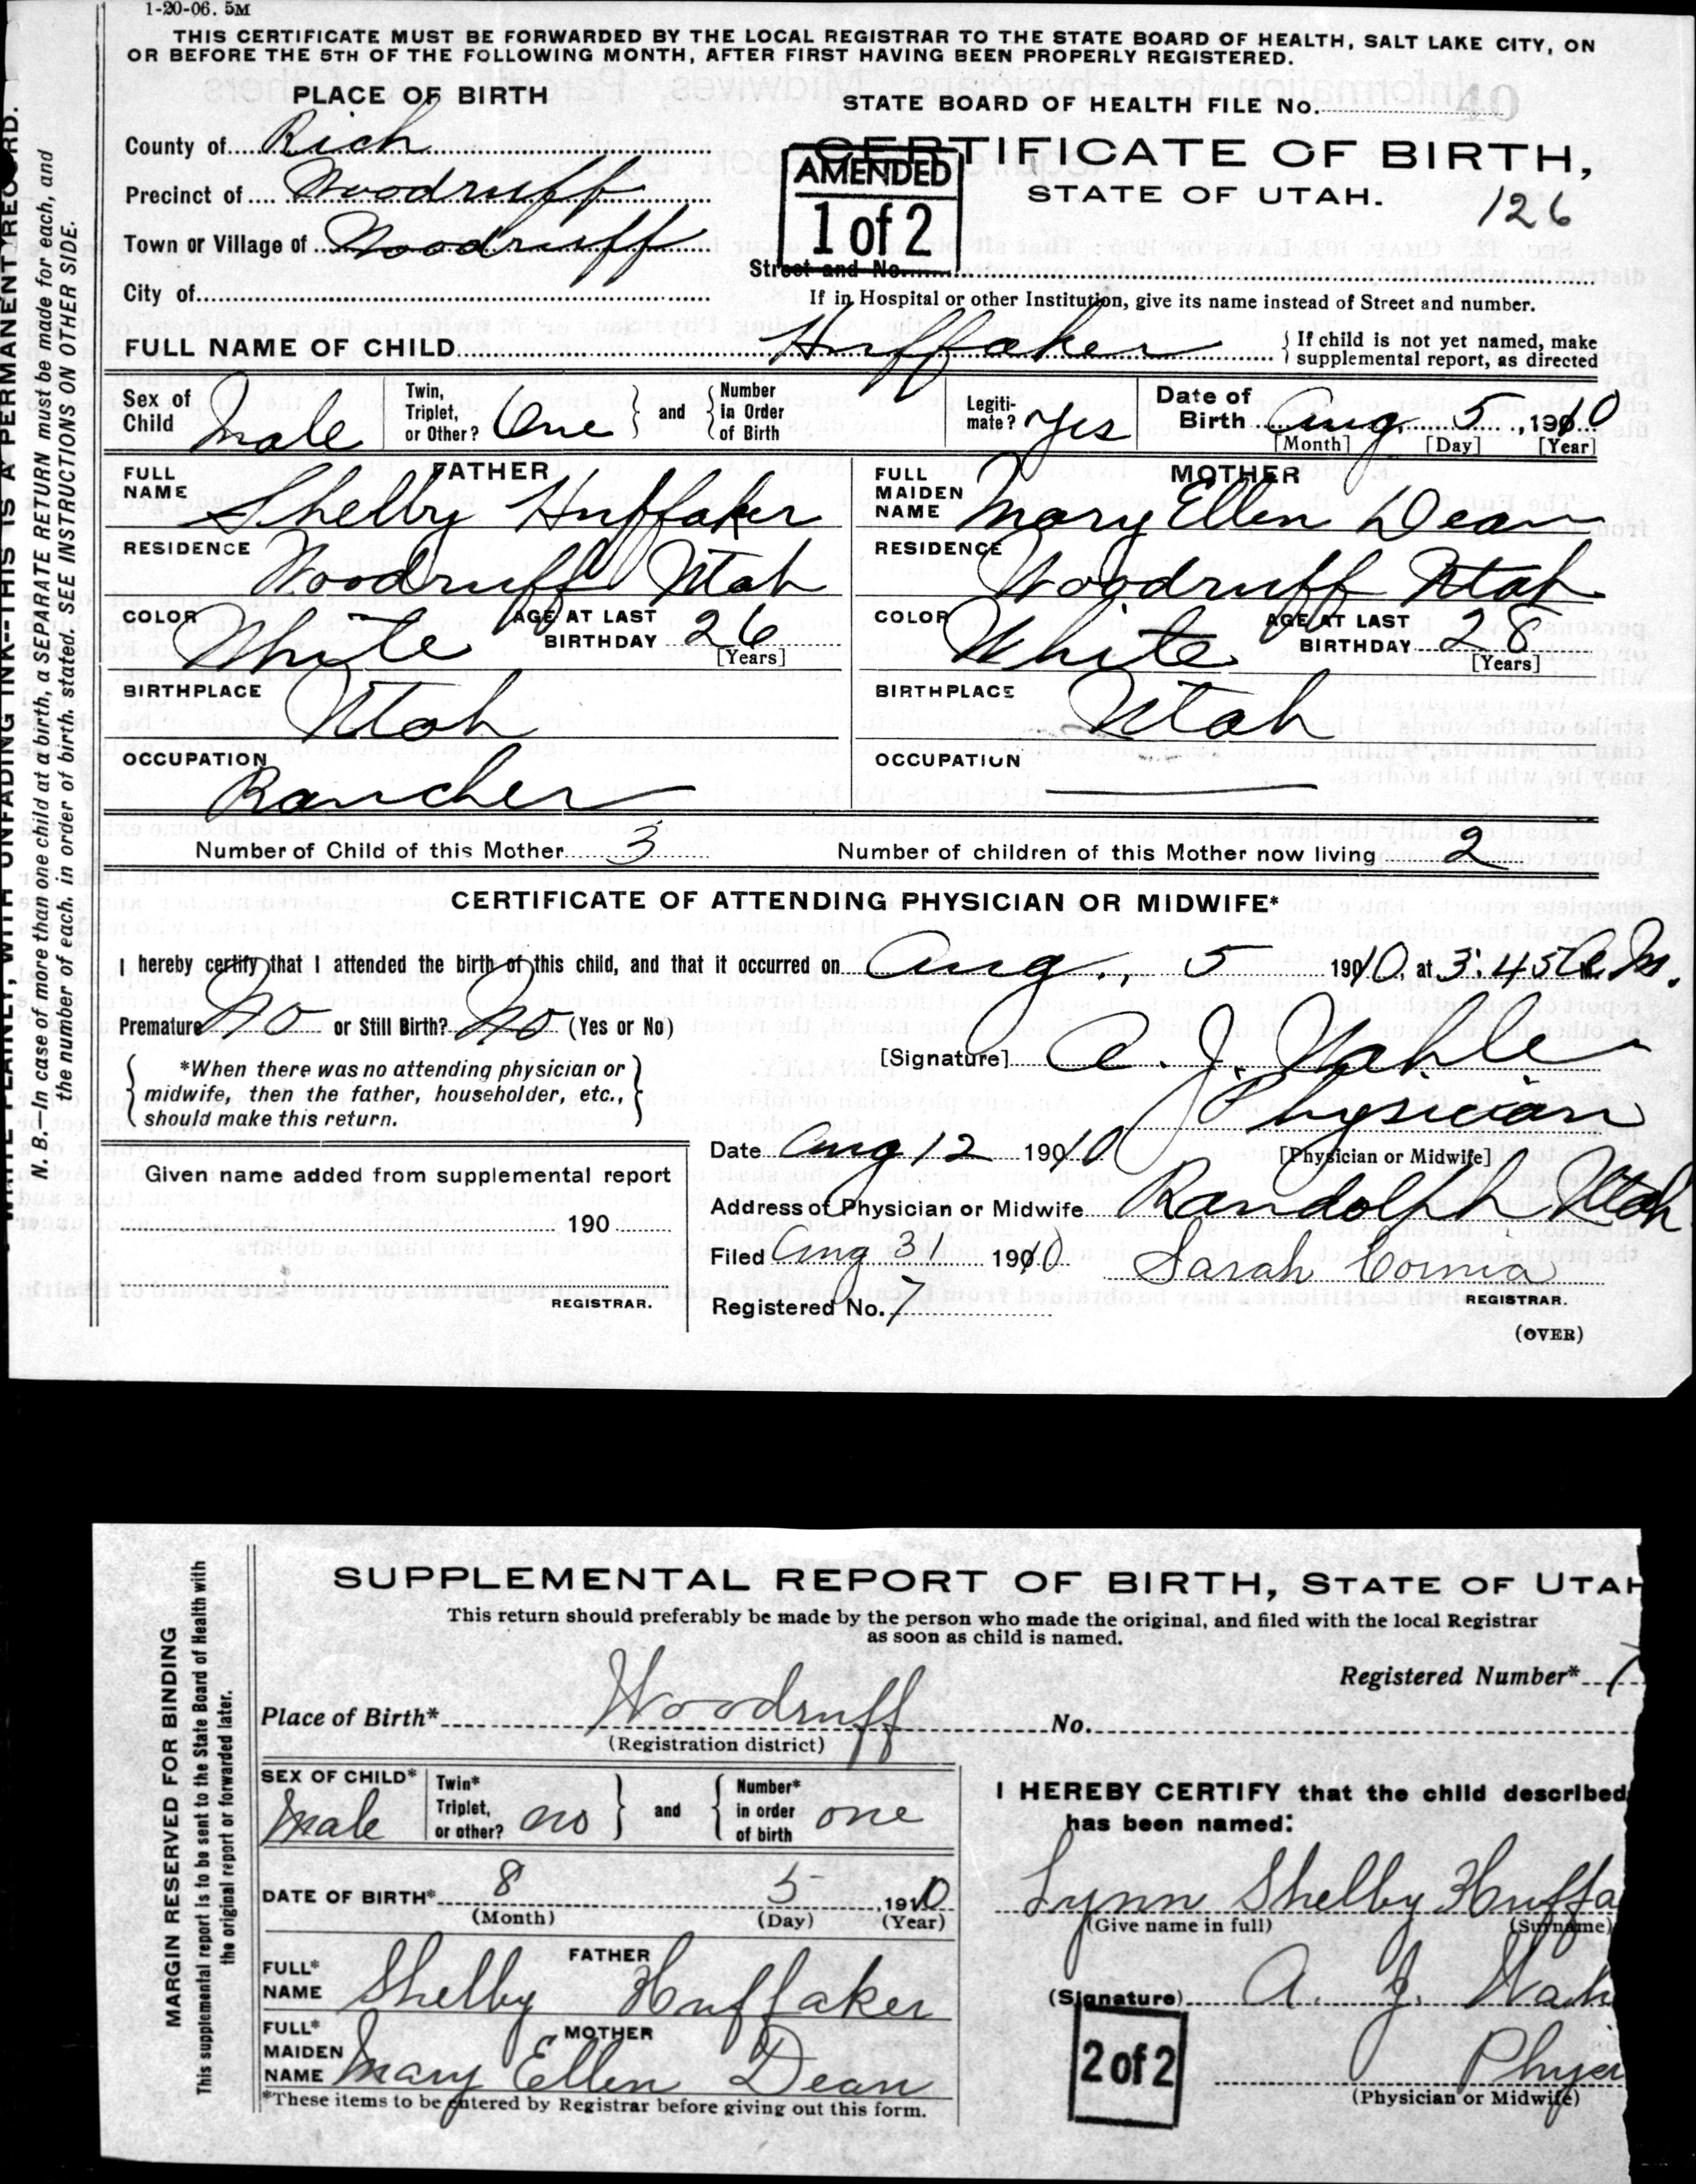 1-20-06. 5M
THIS CERTIFICATE MUST BE FORWARDED BY THE LOCAL REGISTRAR TO THE STATE BOARD OF HEALTH, SALT LAKE CITY, ON
OR BEFORE THE 5TH OF THE FOLLOWING MONTH, AFTER FIRST HAVING BEEN PROPERLY REGISTERED.
PLACE OF BIRTH
STATE BOARD OF HEALTH FILE No.
County of Rich
CERTIFICATE OF BIRTH,
AMENDED
1 of 2
Precinct of Woodruff
STATE OF UTAH.
126
Town or Village of Woodruff
Street and No.
City of
If in Hospital or other Institution, give its name instead of Street and number.
FULL NAME OF CHILD Huffaker { If child is not yet named, make
supplemental report, as directed
Sex of Child Male Twin, Triplet, or Other? One } and { Number in Order of Birth Legiti-mate? Yes Date of Birth Aug. 5, 1910
[Month] [Day] [Year]
FATHER
FULL NAME Shelby Huffaker
MOTHER
FULL MAIDEN NAME Mary Ellen Dean
RESIDENCE Woodruff Utah
RESIDENCE Woodruff Utah
COLOR White AGE AT LAST BIRTHDAY 26 [Years]
COLOR White AGE AT LAST BIRTHDAY 28 [Years]
BIRTHPLACE Utah
BIRTHPLACE Utah
OCCUPATION Rancher
OCCUPATION
Number of Child of this Mother 3 Number of children of this Mother now living 2
CERTIFICATE OF ATTENDING PHYSICIAN OR MIDWIFE*
I hereby certify that I attended the birth of this child, and that it occurred on Aug., 5 1910, at 3:45 A.M.
Premature No or Still Birth? No (Yes or No)
*When there was no attending physician or
midwife, then the father, householder, etc.,
should make this return.
[Signature] A. J.
Physician
[Physician or Midwife]
Date Aug 12 1910
Given name added from supplemental report
190
REGISTRAR.
Address of Physician or Midwife Randolph Utah
Filed Aug 31 1910 Sarah Cornia
REGISTRAR.
Registered No. 7
(OVER)
WRITE PLAINLY, WITH UNFADING INK--THIS IS A PERMANENT RECORD.
N. B.—In case of more than one child at a birth, a SEPARATE RETURN must be made for each, and
the number of each, in order of birth, stated. SEE INSTRUCTIONS ON OTHER SIDE.
SUPPLEMENTAL REPORT OF BIRTH, STATE OF UTAH
This return should preferably be made by the person who made the original, and filed with the local Registrar
as soon as child is named.
Registered Number* 7
Place of Birth* Woodruff No.
(Registration district)
SEX OF CHILD* Male Twin* Triplet, or other? no } and { Number* in order of birth one
I HEREBY CERTIFY that the child described
has been named:
DATE OF BIRTH* 8 5, 1910
(Month) (Day) (Year)
Lynn Shelby Huffa
(Give name in full) (Surname)
FATHER
FULL* NAME Shelby Huffaker
(Signature) A. J.
MOTHER
FULL* MAIDEN NAME Mary Ellen Dean
2 of 2
Physi
(Physician or Midwife)
*These items to be entered by Registrar before giving out this form.
MARGIN RESERVED FOR BINDING
This supplemental report is to be sent to the State Board of Health with
the original report or forwarded later.